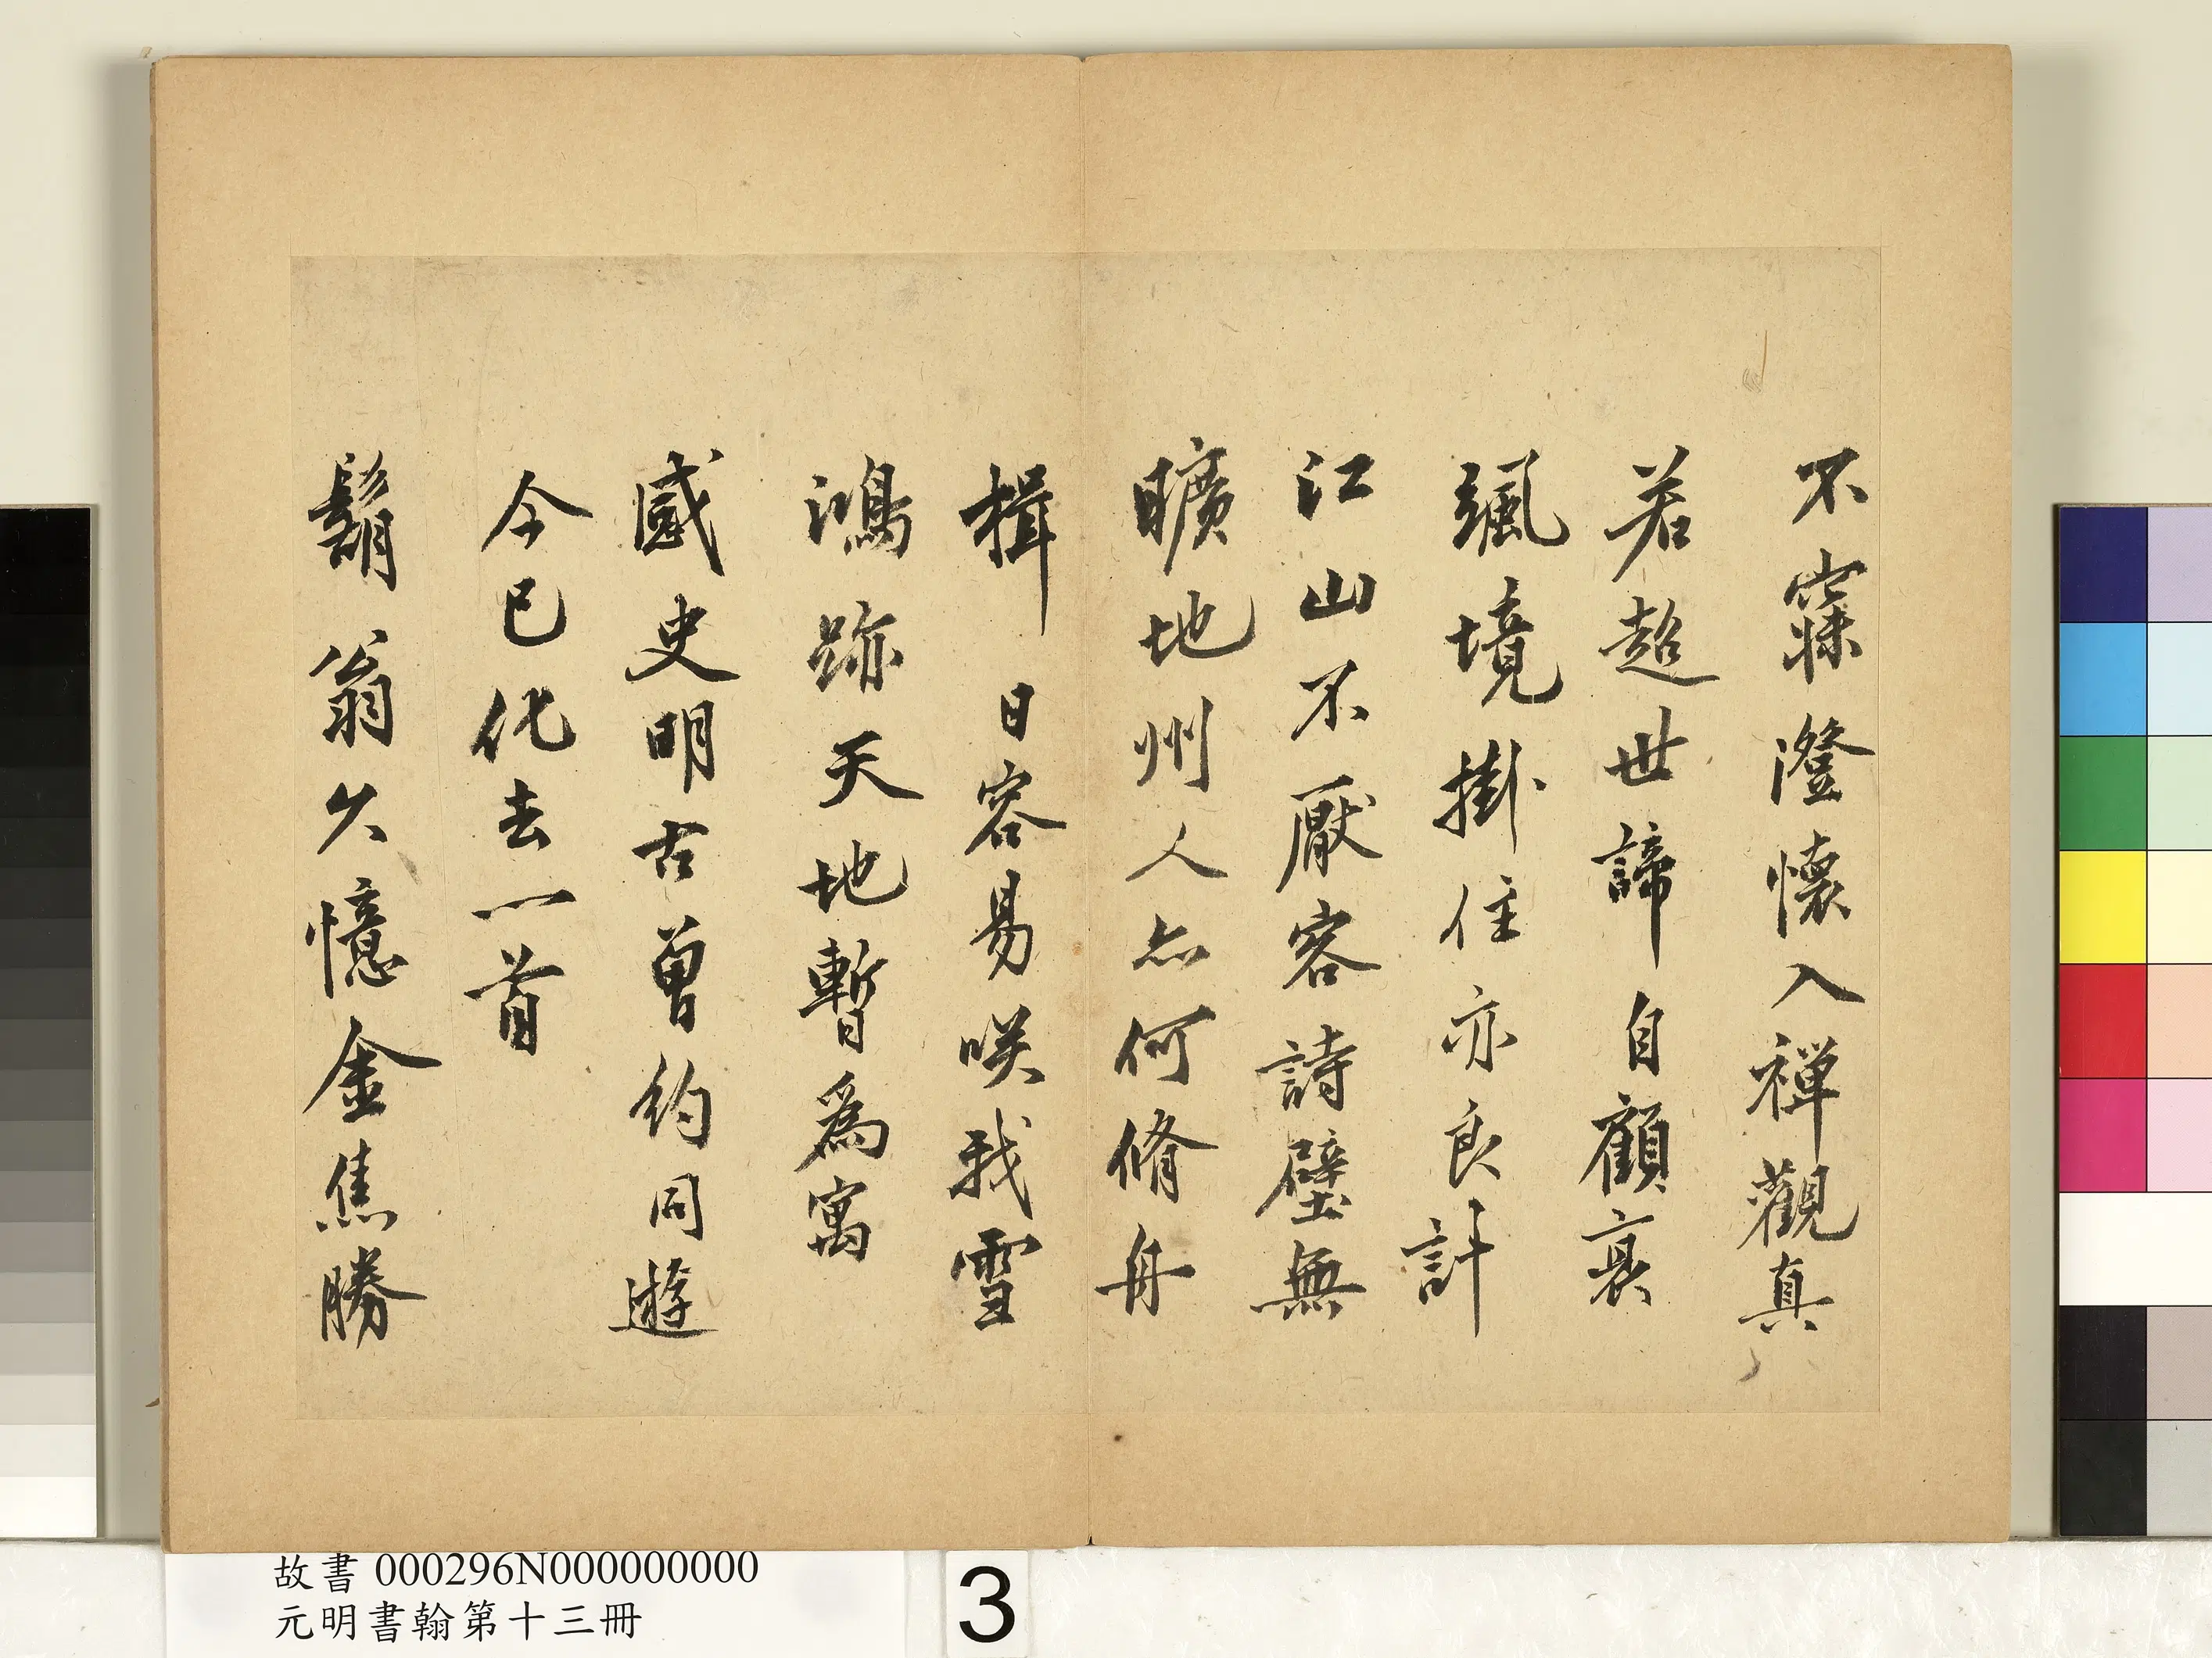 不寐澄懷入禪觀真
若超世諦自顧衰
颯境掛住亦良計
江山不厭客詩壁無
曠地州人亦何脩舟
楫日容易咲我雪
鴻跡天地暫為寓
感史明古曾約同遊
今已化去一首
鬍翁久憶金焦勝
故書 000296N000000000
元明書翰第十三冊
3